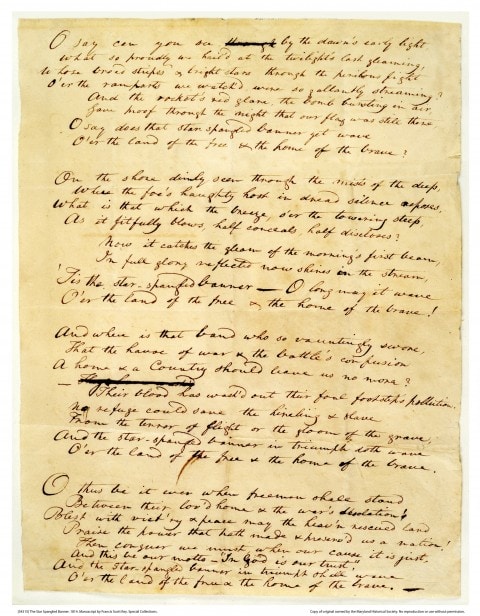 O say can you see through by the dawn's early light
What so proudly we hail'd at the twilight's last gleaming,
Whose broad stripes & bright stars through the perilous fight
O'er the ramparts we watch'd were so gallantly streaming?
And the rocket's red glare, the bomb bursting in air
Gave proof through the night that our flag was still there
O say does that star spangled banner yet wave
O'er the land of the free & the home of the brave?
On the shore dimly seen through the mists of the deep,
Where the foe's haughty host in dread silence reposes,
What is that which the breeze, o'er the towering steep
As it fitfully blows, half conceals, half discloses?
Now it catches the gleam of the morning's first beam,
In full glory reflected now shines in the stream,
'Tis the star-spangled banner — O long may it wave
O'er the land of the free & the home of the brave!
And where is that band who so vauntingly swore,
That the havoc of war & the battle's confusion
A home & a Country should leave us no more?
—
Their blood has wash'd out their foul footstep's pollution.
No refuge could save the hireling & slave
From the terror of flight or the gloom of the grave,
And the star-spangled banner in triumph doth wave
O'er the land of the free & the home of the brave.
O thus be it ever when freemen shall stand
Between their lov'd home & the war's desolation!
Blest with vict'ry & peace may the heav'n rescued land
Praise the power that hath made & preserv'd us a nation!
Then conquer we must, when our cause it is just,
And this be our motto — "In God is our trust,"
And the star-spangled banner in triumph shall wave
O'er the land of the free & the home of the brave. —
The Star Spangled Banner, 1814. Manuscript by Francis Scott Key, Special Collections.
Copy of original owned by the Maryland Historical Society. No reproduction or use without permission.